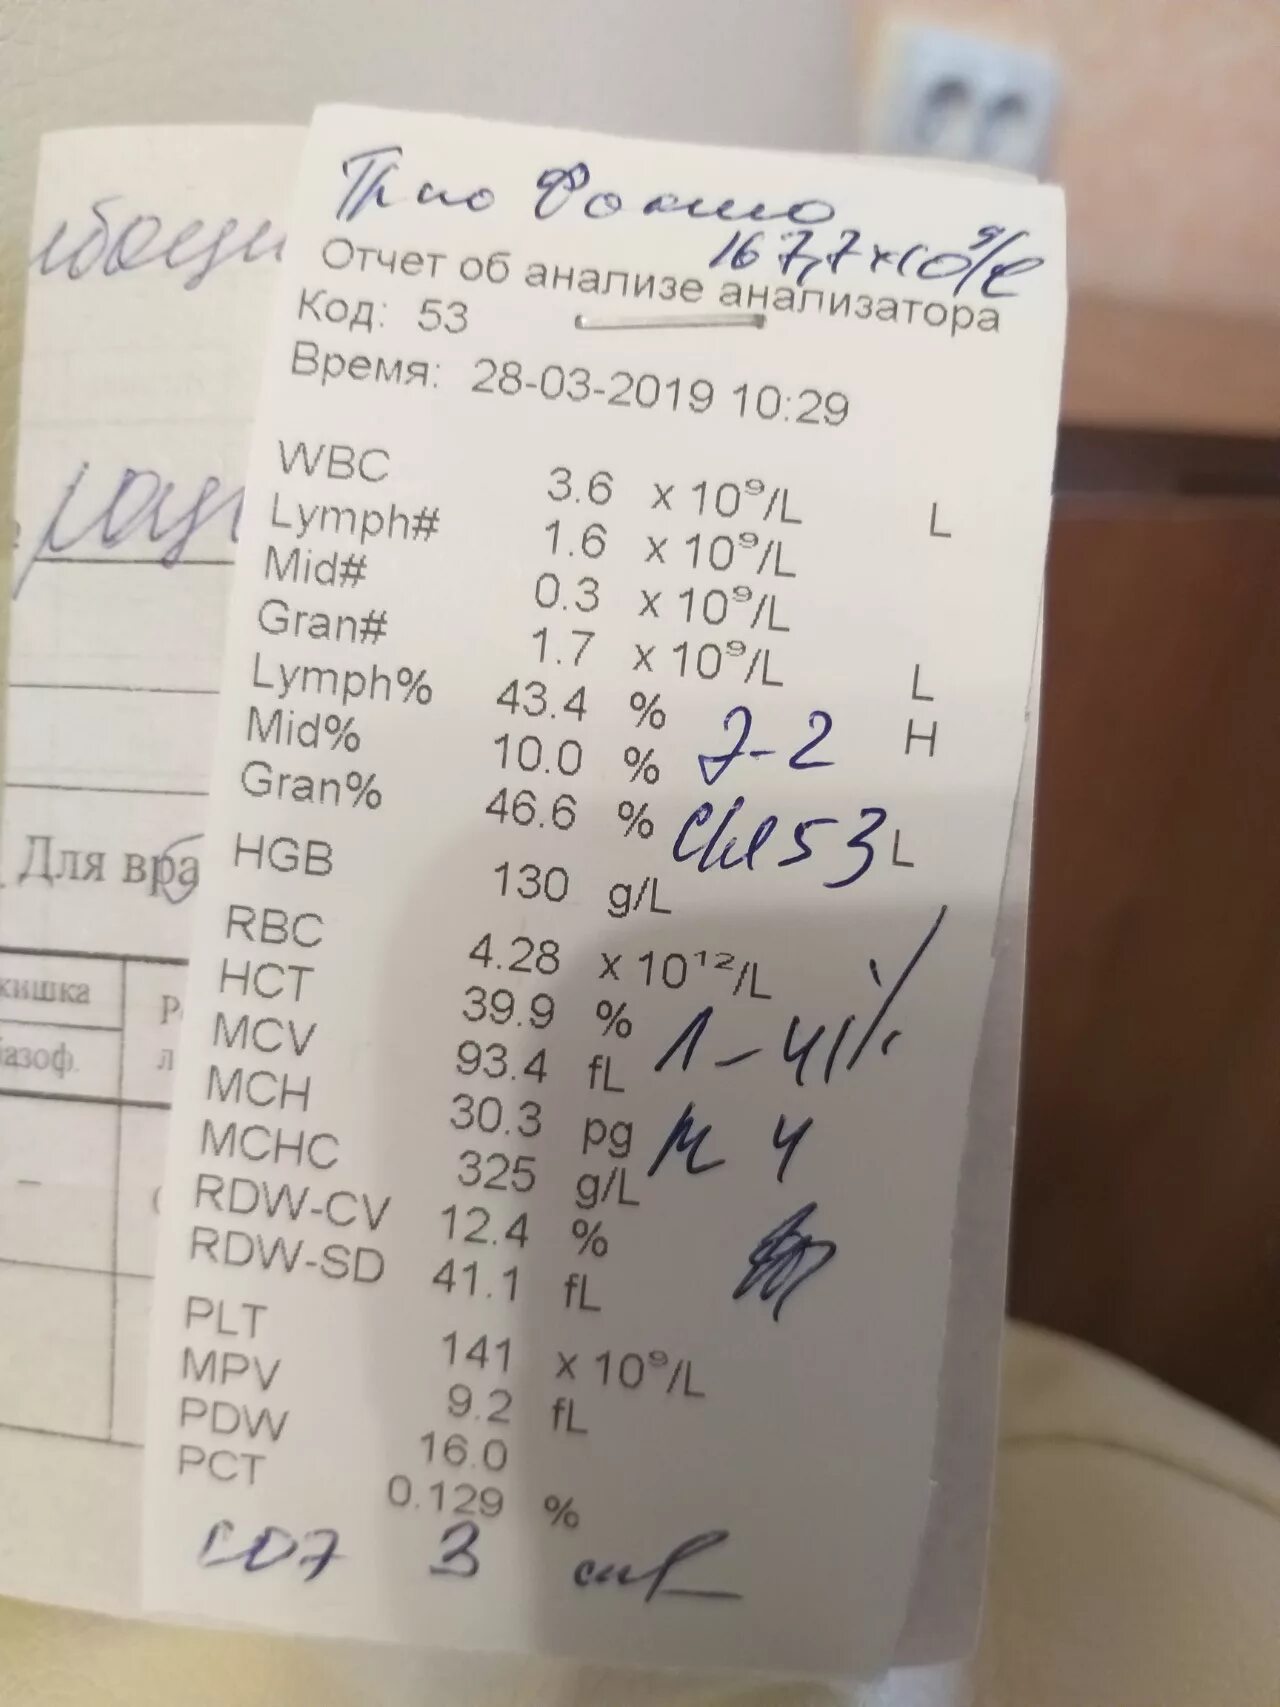 Тр по Фонио
167,7 x 10⁹/л
Отчет об анализе анализатора
Код: 53
Время: 28-03-2019 10:29
WBC 3.6 x 10⁹/L L
Lymph# 1.6 x 10⁹/L
Mid# 0.3 x 10⁹/L
Gran# 1.7 x 10⁹/L L
Lymph% 43.4 % H
Mid% 10.0 % Э-2
Gran% 46.6 % L
с/я 53
HGB 130 g/L
RBC 4.28 x 10¹²/L
HCT 39.9 %
MCV 93.4 fL Л-41%
MCH 30.3 pg
MCHC 325 g/L М 4
RDW-CV 12.4 %
RDW-SD 41.1 fL
PLT 141 x 10⁹/L
MPV 9.2 fL
PDW 16.0
PCT 0.129 %
СОЭ 3
Для вра
кишка
базоф.